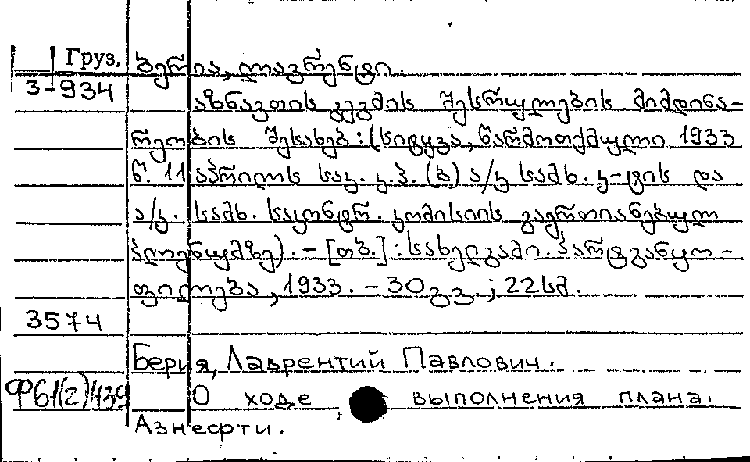 Груз. ბერია, ლავრენტი.
3-934
აზნავთის გეგმის შესრულების მიმდინა-
რეობის შესახებ : (სიტყვა, წარმოთქმული 1933
წ. 11 აპრილს საკ. კ.პ. (ბ) ა/კ სამხ. კ-ტის და
ა/კ. სამხ. საკონტრ. კომისიის გაერთიანებულ
პლენუმზე). - [თბ.] : სახელგამი. პარტგანყო-
ფილება, 1933. - 30 გვ. ; 22 სმ.
3574
Берия, Лаврентий Павлович.
Ф61(2)/439 О ходе выполнения плана.
Азнефти.